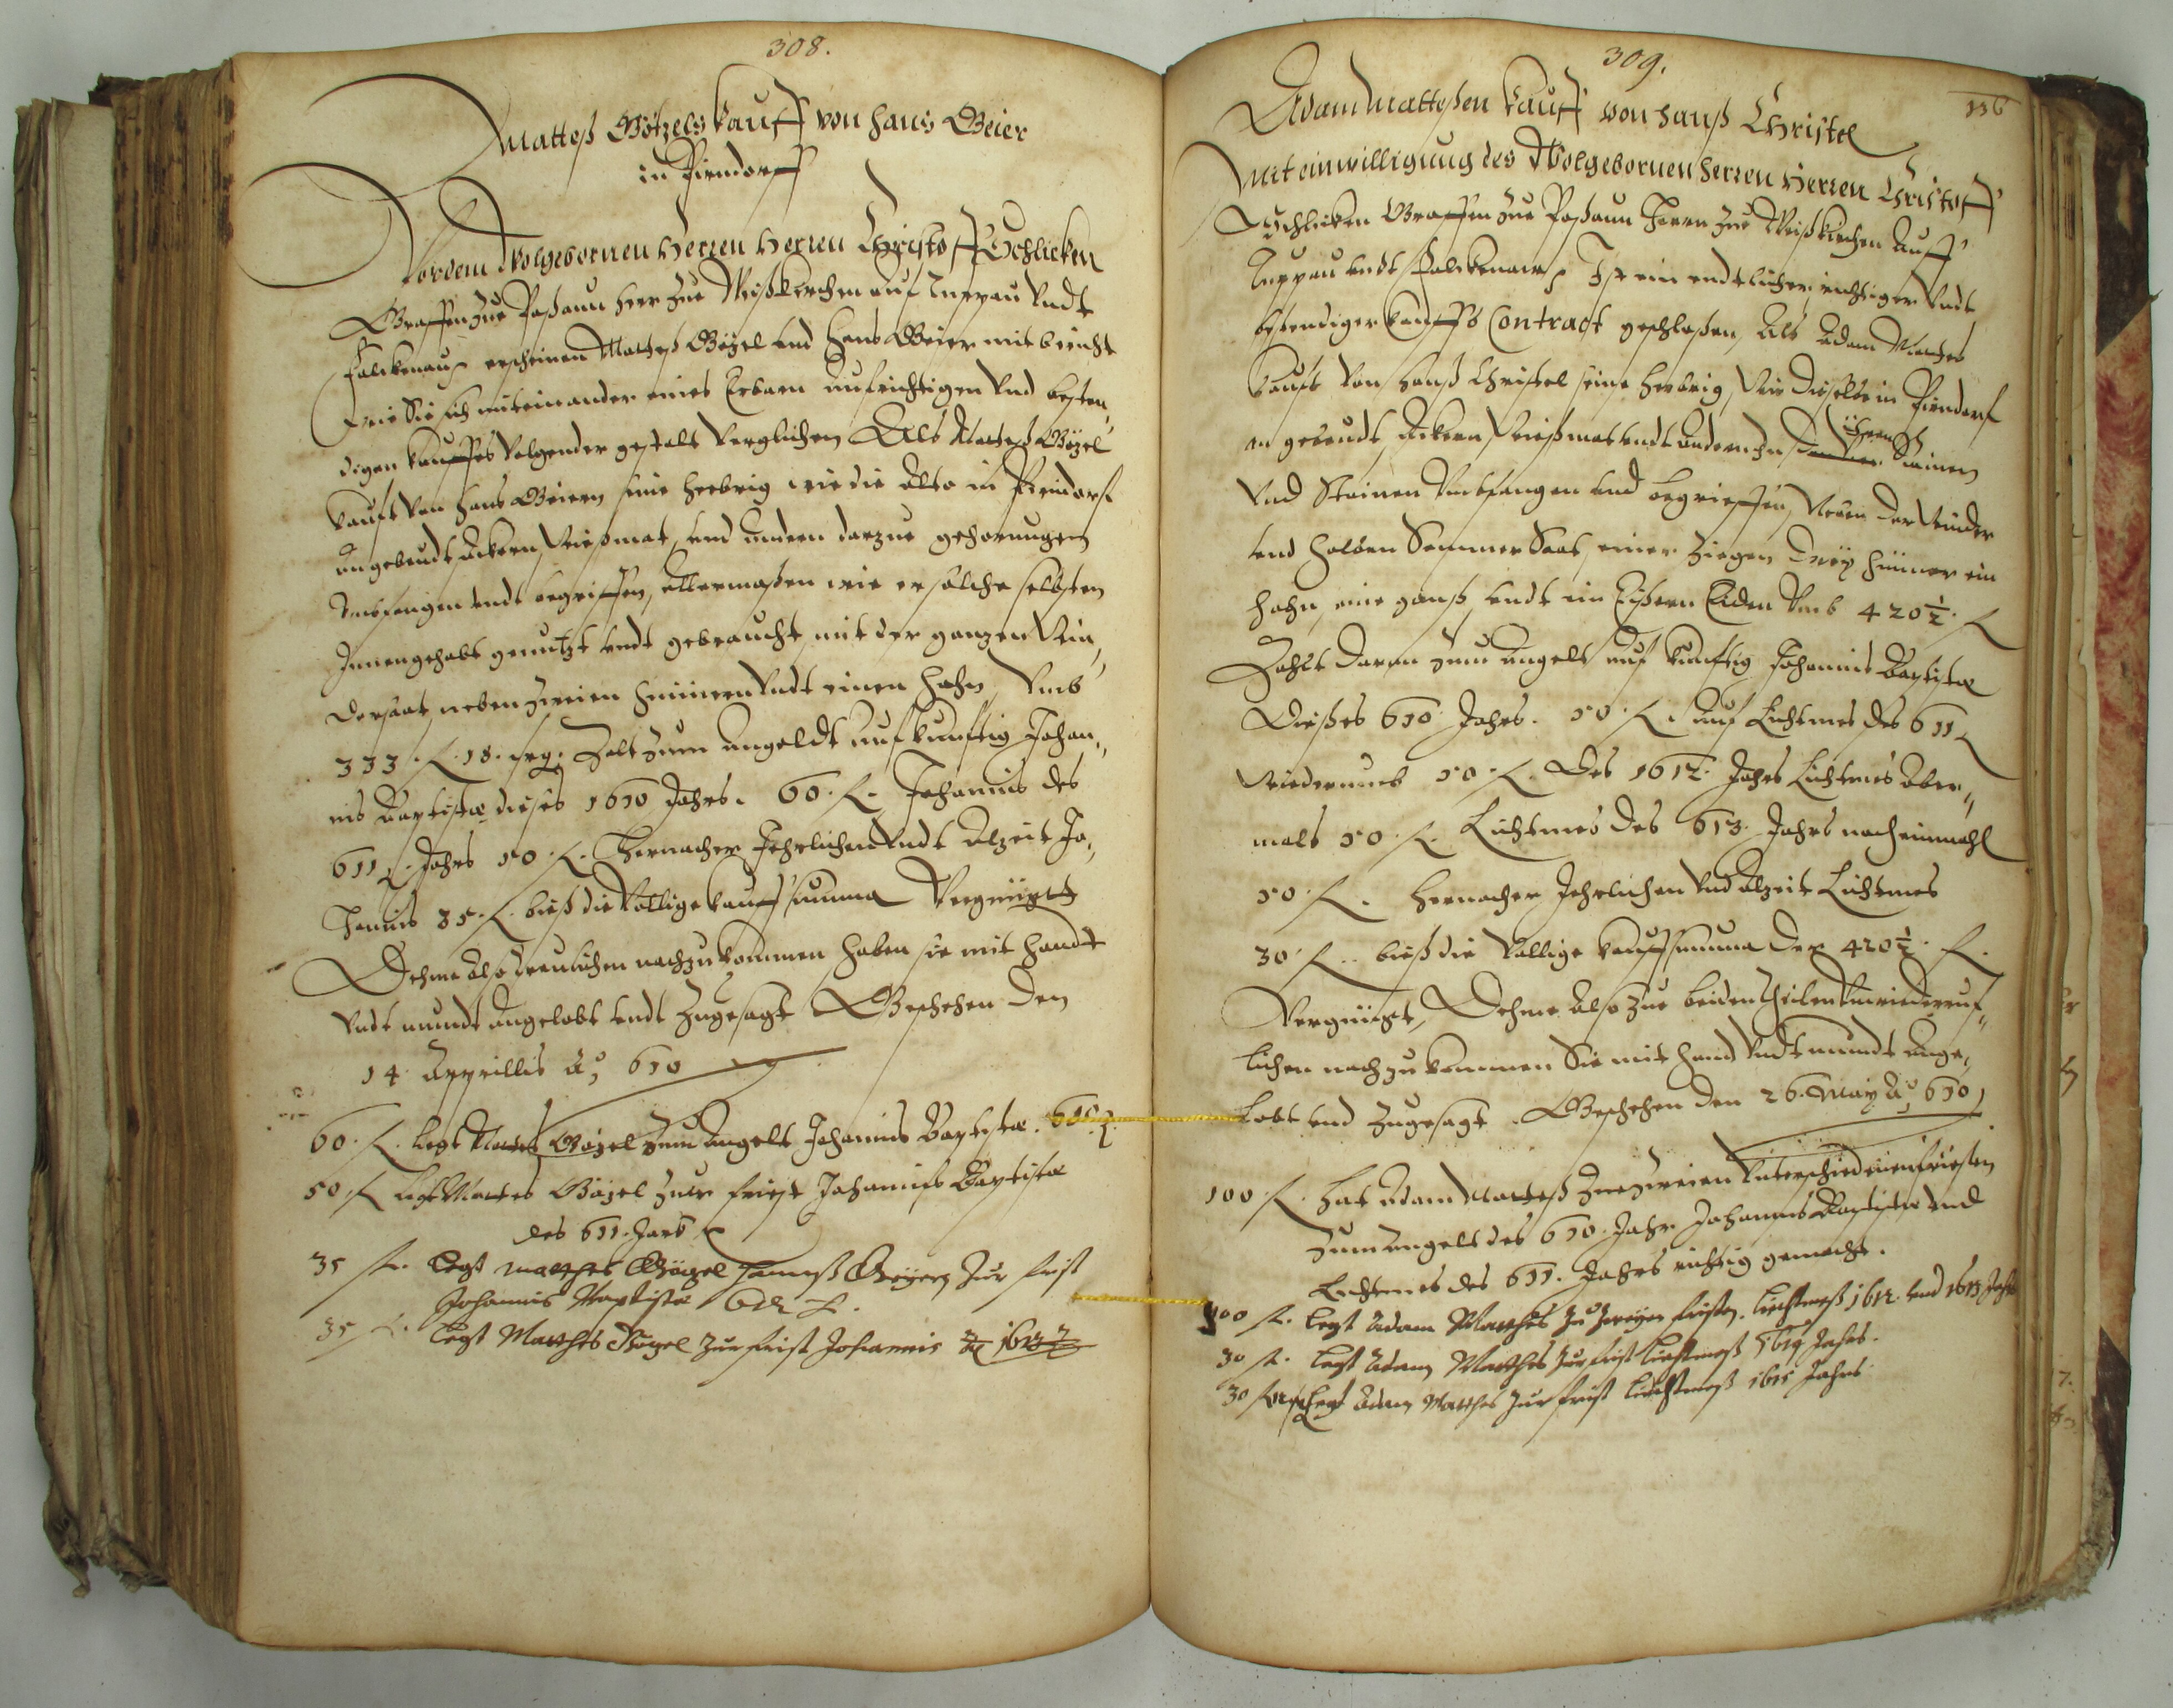 308.
Matteß Götzels kauff von Hans Geier
in Pirndorff
Vor dem Wolgebornen Herren Herren Christoff Schlicken
Graffen zue Paßaun Herr zue Weißkirchen auf Luppau undt
Falckenaw erscheinen Matteß Götzel und Hans Geier mit bericht
wie Sie sich miteinander eines Erbarn aufrichtigen und besten,,
digen kauffes volgender gestalt verglichen Als Matteß Götzel
kauft von Hans Geiern seine herbrig wie die alda in Pirndorf
an gebeudt, äckern, wießmat, und andern darzue gehorungen
umbfangen undt begriffen, allermaßen wie er solche selbsten
Innengehabt genutzt undt gebraucht, mit der ganzen Win,,
dersaat, neben zweien hünnern undt einen Hahn, umb
333. f. 18. Zalt zum angeldt auf kunftig Johan,,
nis Baptistæ dieses 1610 Jahrs. 60. f. Johannis des
611. Jahrs 50. f. Hernacher Jehrlichen undt alzeit Jo,,
hannis 35. f. bieß die völlige kauffsumma vergnügt
Dehme also treulichen nachzukommen haben sie mit handt
undt mundt angelobt undt zugesagt Geschehen den
14 Apprillis Ao 610
60. f. legt Mattes Götzel zum angelt Johannis Baptistæ. 610.
50. f. legt Mattes Götzel zur frist Johannis Baptistæ
des 611. Jars
35 f. Legt Matthes Götzel Hannß Geyern zur frist
Johannis Baptistæ 612.
35 f. Legt Matthes Götzel zur frist Johannis 1613
309.
156
Adam Matteßen kauff von Hanß Christel
Mit einwilligung des Wolgebornen Herren Herren Christoff
Schlicken Graffen zue Paßaun Herrn zue Weißkirchen Auff
Luppau undt Falckenaw Ist ein endtlicher, richtiger undt
bestendiger kauffs Contract geschlaßen, Als Adam Mattes
kauft von Hanß Christel seine herbrig, wie dieselbe in Pirndorf
an gebeudt, äckern, wießmat undt andern in ihren Rainen
und Steinen umbfangen und begrieffen, neben der Winder
und halben Sommer Saat, einer Ziegen drey hünner ein
Hahn, eine ganß, undt ein Eißern Eiden umb 420½. f.
Zahlt daran zum angelt auf kunftig Johannis Baptistæ
Dießes 610 Jahrs. 50. f. auf Lichtmes des 611
wiederumb 50. f. Des 1612. Jahrs Lichtmes aber,,
mals 50. f. Lichtmes des 613. Jahrs noch einmahl
50. f. Hernacher Jehrlichen und alzeit Lichtmes
30. f. bieß die völlige kauffsumma der 420½. f.
vergnügt, Dehme also zue beiden theilen unwiederruf,,
lichen nachzukommen Sie mit hand undt mundt ange,,
lobt und zugesagt. Geschehen den 26. May Ao 610
100. f. hat Adam Matteß zue zweien unterschiedenen fristen
zum angelt des 610. Jahr Johannis Baptistæ und
Lichtmes des 611. Jahrs richtig gemacht.
100 f. legt Adam Matthes zu zweyen fristen. Liechtmeß 1612. und 1613 Jahr
30 f. legt Adam Matthes zur frist Liechtmeß 1614 Jahrs.
30 f. Legt Adam Matthes zur frist Liechtmeß 1615 Jahrs